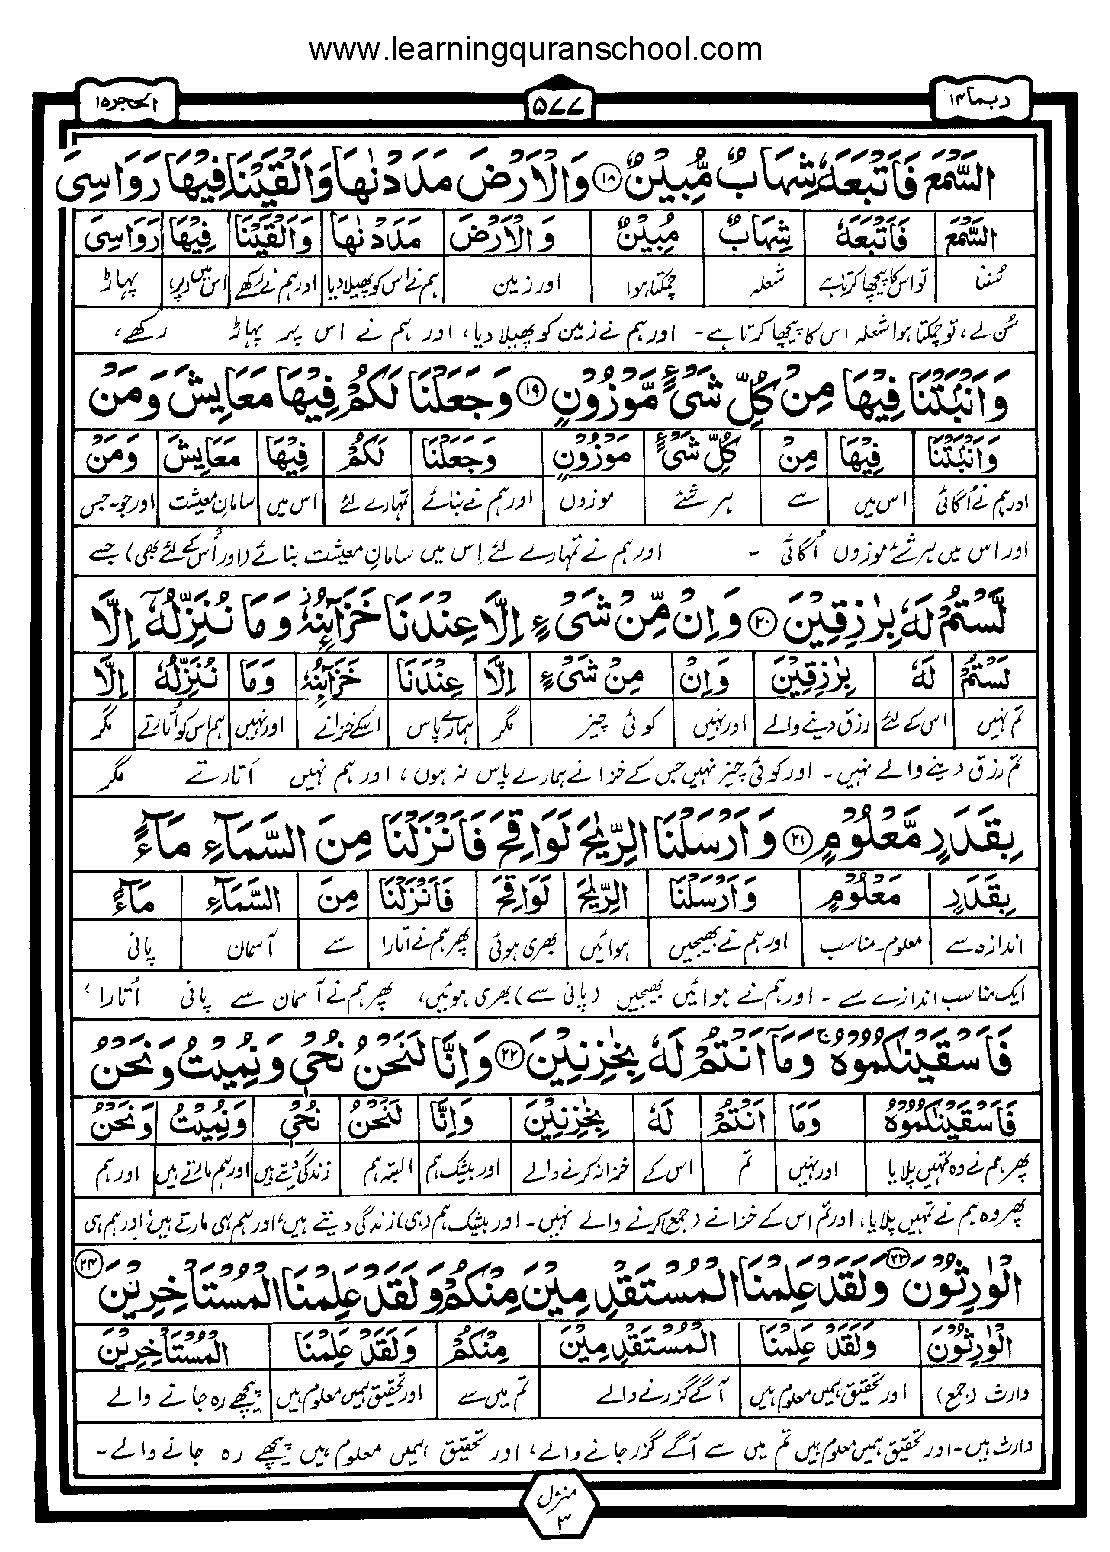 www.learningquranschool.com
ربما ۱۴
۵۷۷
الحجر ۱۵
السَّمْعَ فَاَتْبَعَهٗ شِهَابٌ مُّبِیْنٌ ۝۱۸ وَالْاَرْضَ مَدَدْنٰهَا وَاَلْقَیْنَا فِیْهَا رَوَاسِیَ
السَّمْعَ فَاَتْبَعَهٗ شِهَابٌ مُبِیْنٌ وَالْاَرْضَ مَدَدْنٰهَا وَاَلْقَیْنَا فِیْهَا رَوَاسِیَ
سُننا تو اس کا پیچھا کرتا ہے شعلہ چمکتا ہوا اور زمین ہم نے اس کو پھیلا دیا اور ہم نے رکھے اس میں (پر) پہاڑ
سُن لے، تو چمکتا ہوا شعلہ اس کا پیچھا کرتا ہے۔ اور ہم نے زمین کو پھیلا دیا، اور ہم نے اس پر پہاڑ رکھے،
وَاَنْۢبَتْنَا فِیْهَا مِنْ كُلِّ شَیْءٍ مَّوْزُوْنٍ ۝۱۹ وَجَعَلْنَا لَكُمْ فِیْهَا مَعَایِشَ وَمَنْ
وَاَنْۢبَتْنَا فِیْهَا مِنْ كُلِّ شَیْءٍ مَوْزُوْنٍ وَجَعَلْنَا لَكُمْ فِیْهَا مَعَایِشَ وَمَنْ
اور ہم نے اُگائی اس میں سے ہر شئے موزوں اور ہم نے بنائے تمہارے لئے اس میں سامانِ معیشت اور جو۔ جس
اور اس میں ہر شئے موزوں اُگائی ۔ اور ہم نے تمہارے لئے اس میں سامانِ معیشت بنائے (اور اُس کے لئے بھی) جسے
لَّسْتُمْ لَهٗ بِرٰزِقِیْنَ ۝۲۰ وَاِنْ مِّنْ شَیْءٍ اِلَّا عِنْدَنَا خَزَآىِٕنُهٗ ؗ وَمَا نُنَزِّلُهٗۤ اِلَّا
لَسْتُمْ لَهٗ بِرٰزِقِیْنَ وَاِنْ مِنْ شَیْءٍ اِلَّا عِنْدَنَا خَزَآىِٕنُهٗ وَمَا نُنَزِّلُهٗ اِلَّا
تم نہیں اس کے لئے رزق دینے والے اور نہیں کوئی چیز مگر ہمارے پاس اسکے خزانے اور نہیں ہم اس کو اُتارتے مگر
تم رزق دینے والے نہیں۔ اور کوئی چیز نہیں جس کے خزانے ہمارے پاس نہ ہوں، اور ہم نہیں اُتارتے مگر
بِقَدَرٍ مَّعْلُوْمٍ ۝۲۱ وَاَرْسَلْنَا الرِّیٰحَ لَوَاقِحَ فَاَنْزَلْنَا مِنَ السَّمَآءِ مَآءً
بِقَدَرٍ مَعْلُوْمٍ وَاَرْسَلْنَا الرِّیٰحَ لَوَاقِحَ فَاَنْزَلْنَا مِنَ السَّمَآءِ مَآءً
اندازہ سے معلوم۔ مناسب اور ہم نے بھیجیں ہوائیں بھری ہوئی پھر ہم نے اتارا سے آسمان پانی
ایک مناسب اندازے سے ۔ اور ہم نے ہوائیں بھیجیں (پانی سے) بھری ہوئیں، پھر ہم نے آسمان سے پانی اُتارا،
فَاَسْقَیْنٰكُمُوْهُ ۚ وَمَاۤ اَنْتُمْ لَهٗ بِخٰزِنِیْنَ ۝۲۲ وَاِنَّا لَنَحْنُ نُحْیٖ وَنُمِیْتُ وَنَحْنُ
فَاَسْقَیْنٰكُمُوْهُ وَمَا اَنْتُمْ لَهٗ بِخٰزِنِیْنَ وَاِنَّا لَنَحْنُ نُحْیٖ وَنُمِیْتُ وَنَحْنُ
پھر ہم نے وہ تمہیں پلایا اور نہیں تم اس کے خزانہ کرنے والے اور بیشک ہم البتہ ہم زندگی دیتے ہیں اور ہم مارتے ہیں اور ہم
پھر وہ ہم نے تمہیں پلایا، اور تم اس کے خزانے (جمع) کرنے والے نہیں۔ اور بیشک ہم (ہی) زندگی دیتے ہیں، اور ہم ہی مارتے ہیں، اور ہم ہی
الْوٰرِثُوْنَ ۝۲۳ وَلَقَدْ عَلِمْنَا الْمُسْتَقْدِمِیْنَ مِنْكُمْ وَلَقَدْ عَلِمْنَا الْمُسْتَاْخِرِیْنَ ۝۲۴
الْوٰرِثُوْنَ وَلَقَدْ عَلِمْنَا الْمُسْتَقْدِمِیْنَ مِنْكُمْ وَلَقَدْ عَلِمْنَا الْمُسْتَاْخِرِیْنَ
وارث (جمع) اور تحقیق ہمیں معلوم ہیں آگے گزرنے والے تم میں سے اور تحقیق ہمیں معلوم ہیں پیچھے رہ جانے والے
وارث ہیں۔ اور تحقیق ہمیں معلوم ہیں تم میں سے آگے گزر جانے والے، اور تحقیق ہمیں معلوم ہیں پیچھے رہ جانے والے۔
منزل
۳